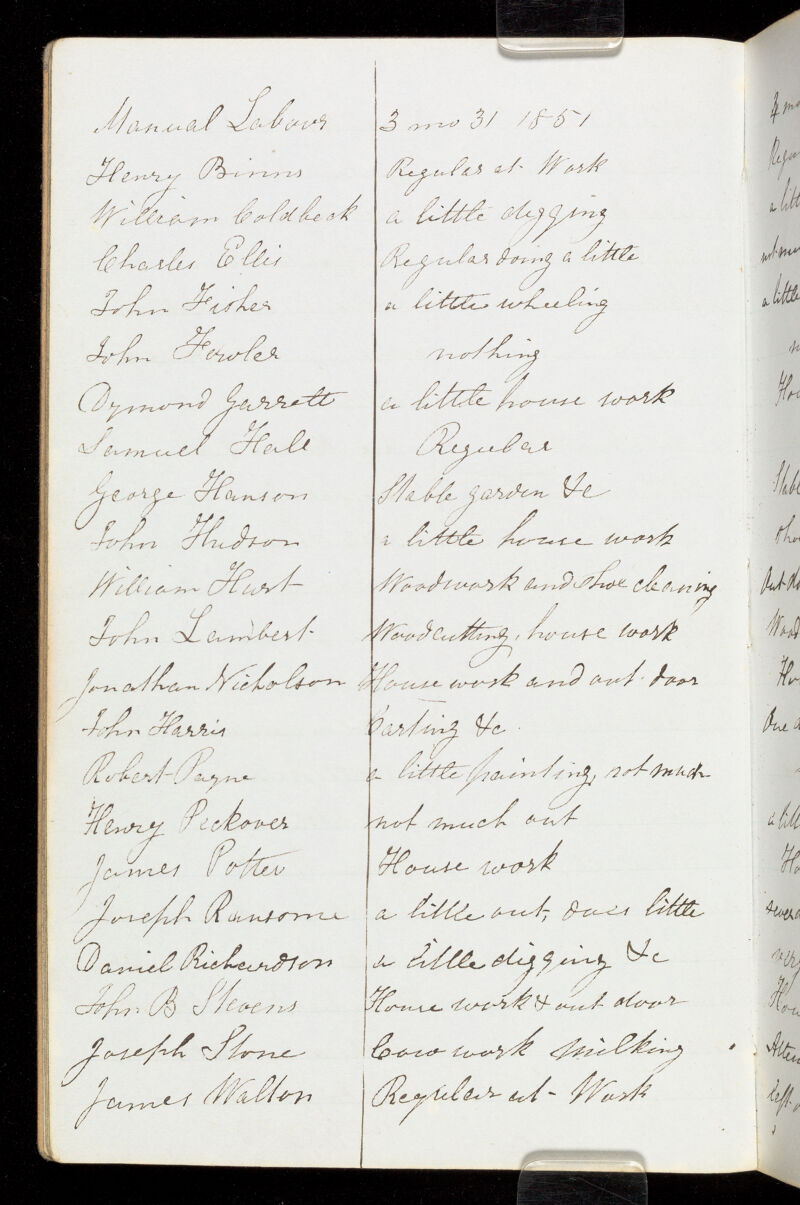 Manual Labour 3 mo 31 1851
Henry Binns Regular at Work
William Coldbeck a little digging
Charles Ellis Regular doing a little
John Fisher a little wheeling
John Fowler nothing
Dymond Garrett a little house work
Samuel Hale Regular
George Hanson Stable garden &c
John Hudson a little house work
William Hurt Woodwork and shoe cleaning
John Lambert Woodcutting, house work
Jonathan Nicholson House work and out door
John Harris Carting &c
Robert Payne a little painting, not much
Henry Peckover not much out
James Potter House work
Joseph Ransome a little out, does little
Daniel Richardson a little digging &c
John B Stevens House work & out door
Joseph Stone Cow work milking
James Walton Regular at Work